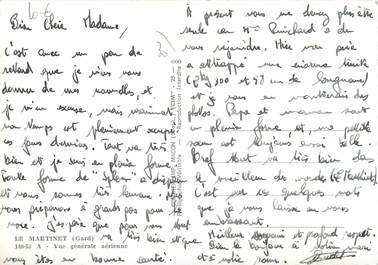 Bien Chère Madame,
C'est avec un peu de
retard que je viens vous
donner de mes nouvelles, et
je m'en excuse, mais vraiment
mon temps est pleinement occupé
ces jours derniers. Tout va très
bien et je suis en pleine forme,
toute forme de "spleen" a disparu
et nous sommes très heureux. Nous
nous préparons à grands pas pour
J'espère que pour vous tout
va très bien et que
vous êtes en bonne santé.
LE MARTINET (Gard)
A - Vue générale aérienne
10-6
30
A présent vous ne devez plus être
seule car Mme Guichard a dû
vous rejoindre. Hier mon père
a attrappé une énorme truite
(2 kg 300 et 58 cm de longueur)
et je vous en montrerai des
photos. Papa et maman sont
en pleine forme, et une petite
sœur est toujours aussi belle.
Bref tout va très bien dans
le meilleur des monde (Le Martinet)
C'est sur ces quelques mots
que je vous laisse en vous
embrassant.
Meilleur souvenir et profond respect.
Bien le bonjour à